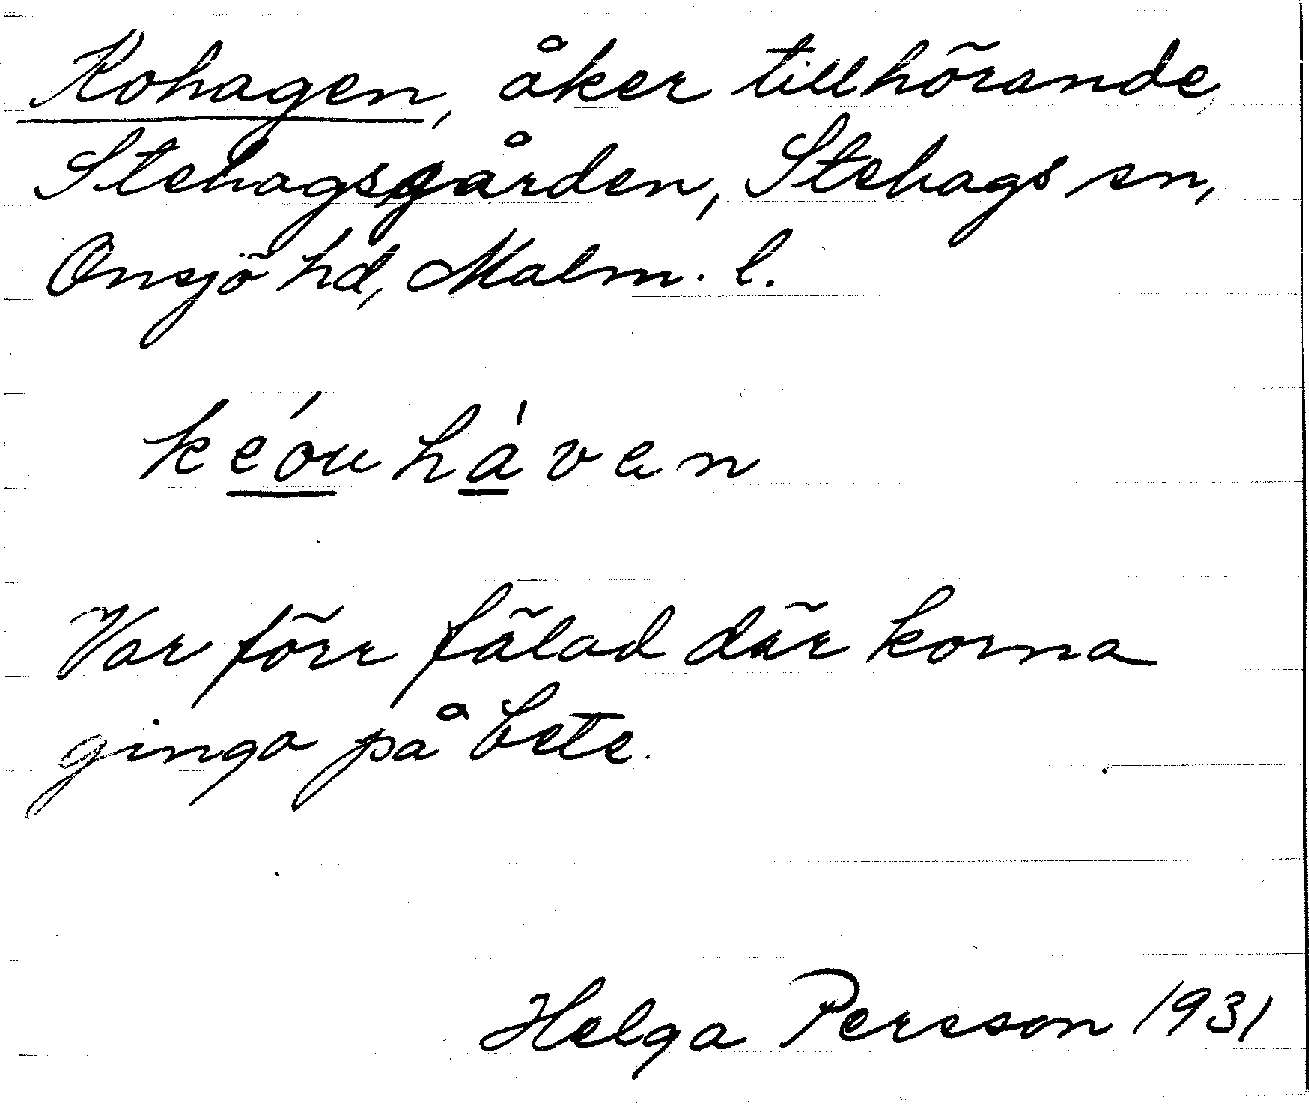 Kohagen, åker tillhörande
Stehagsgården, Stehags sn,
Onsjö hd, Malm. l.
keóuhàven
Var förr fälad där korna
gingo på bete.
Helga Persson 1931